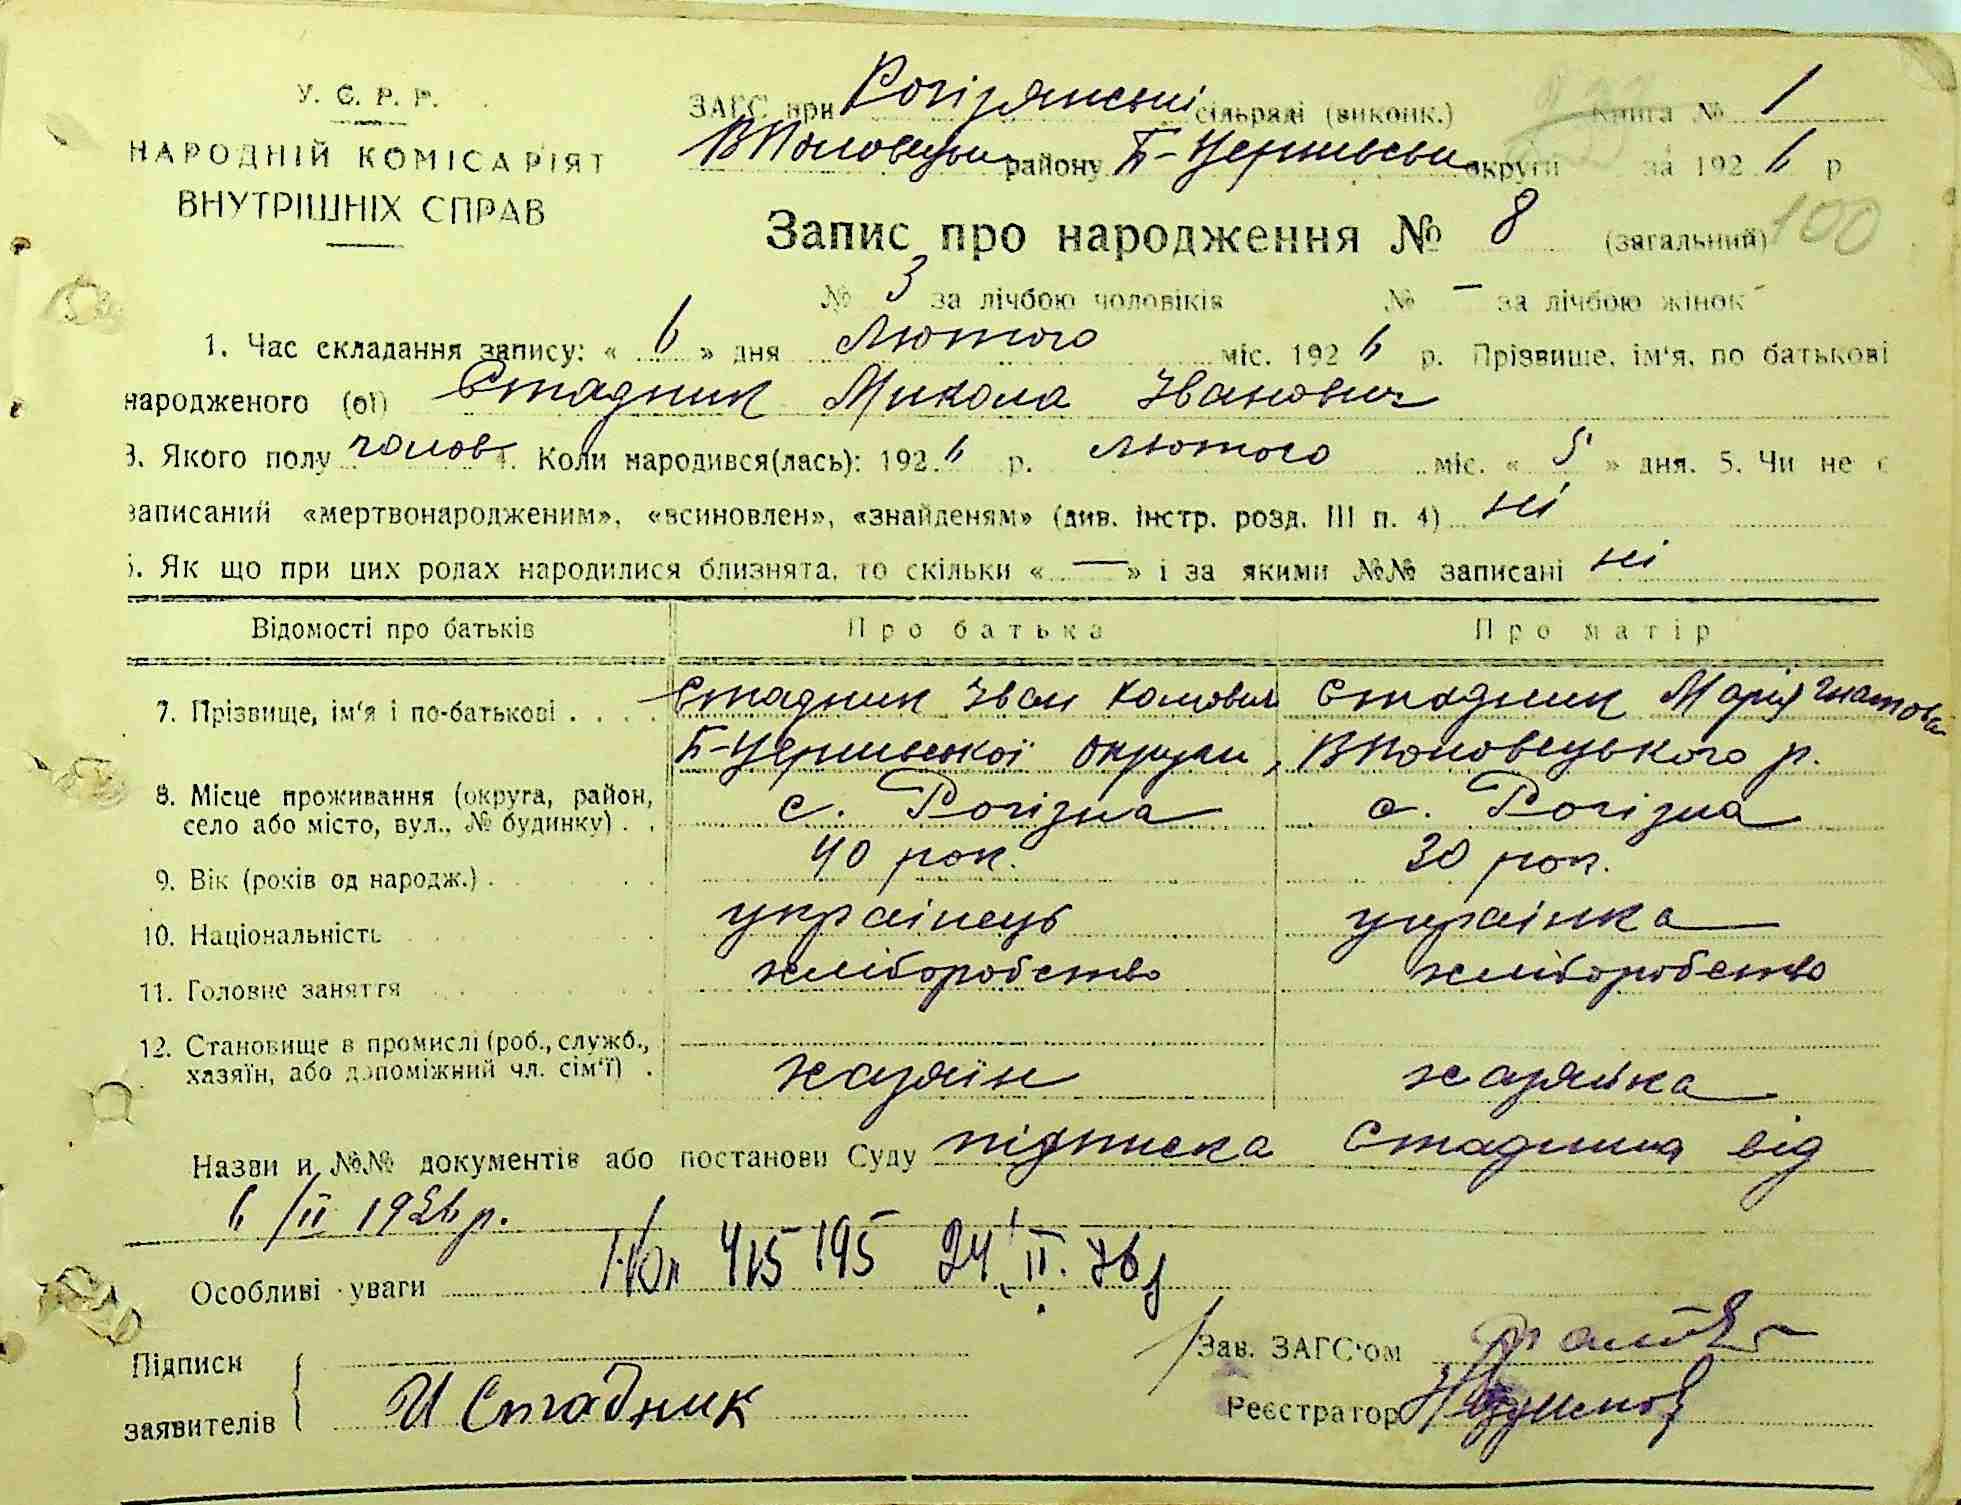 У. С. Р. Р.
НАРОДНІЙ КОМІСАРІЯТ
ВНУТРІШНІХ СПРАВ
ЗАГС при Рогізянській сільраді (виконк.) Книга № 1
ВПоловецьк району Б-Церківськ округи за 1926 р
Запис про народження № 8 (загальний) 100
№ 3 за лічбою чоловіків № — за лічбою жінок
1. Час складання запису: « 6 » дня Лютого міс. 1926 р. Прізвище, ім'я, по батькові
народженого (ої) Стадник Микола Іванович
3. Якого полу чолов 4. Коли народився(лась): 1926 р. лютого міс. « 5 » дня. 5. Чи не є
записаний «мертвонародженим», «всиновлен», «знайденям» (див. інстр. розд. III п. 4) ні
6. Як що при цих родах народилися близнята, то скільки « — » і за якими №№ записані ні
Відомості про батьків Про батька Про матір
7. Прізвище, ім'я і по-батькові . . . . Стадник Іван Стадник Марія Гнатова
Б-Церківської округи, ВПоловецького р.
8. Місце проживання (округа, район,
село або місто, вул., № будинку) . . с. Рогізна с. Рогізна
9. Вік (років од народж.) . 40 рок. 30 рок.
10. Національність українець українка
11. Головне заняття хліборобство хліборобство
12. Становище в промислі (роб., служб.,
хазяїн, або допоміжний чл. сім'ї) . хазяїн хазяйка
Назви и №№ документів або постанови Суду підписка Стадника від
6/II 1926 р.
Особливі уваги 415195 24.II.76
Підписи
заявителів И Стадник
Зав. ЗАГС'ом
Реєстратор